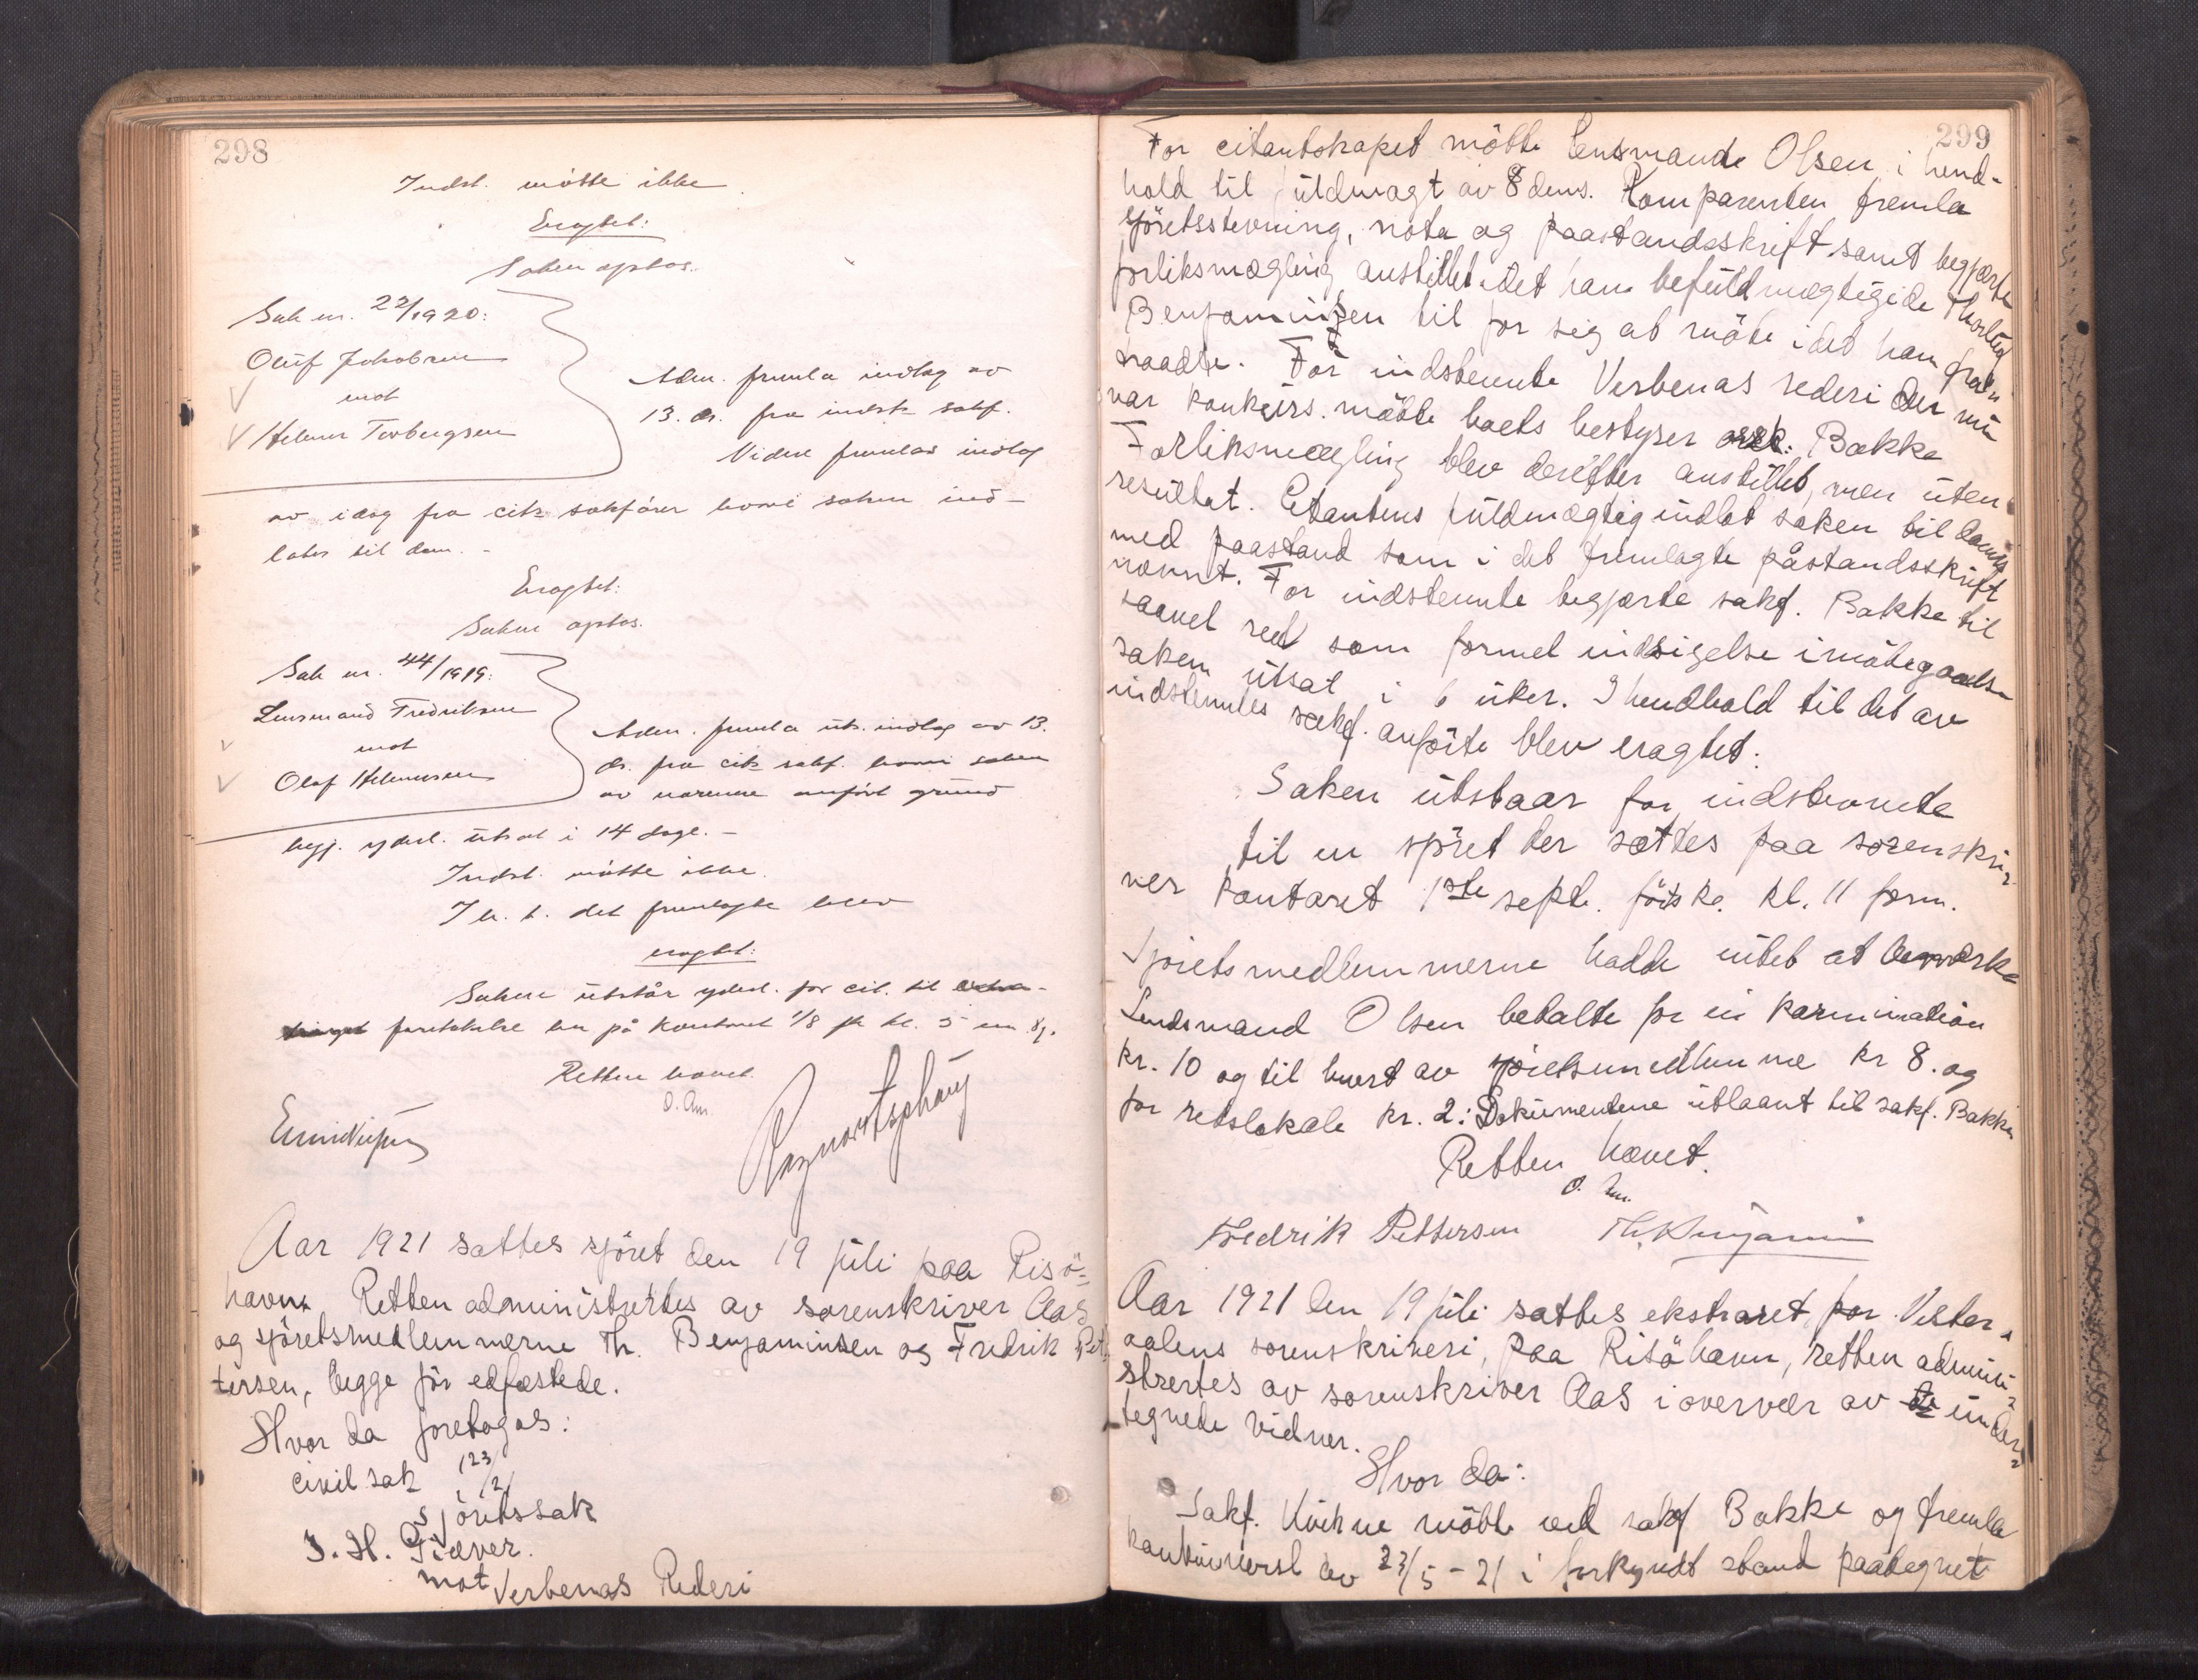 298
Indst. møtte ikke
Eragtet:
Saken optas.
Sak nr. 22/1920:
Oluf Jakobsen
mot
Helmer Torbergsen
Adm. fremla indlæg av
13. ds. fra indst. sakf.
Videre fremlas indlæg
av idag fra cit. sakfører hvori saken ind-
lates til dom. -
Eragtet:
Saken optas.
Sak nr. 44/1919:
Lensmand Fredriksen
mot
Olaf Helmersen
Adm. fremla uts. indlæg av 13.
ds. fra cit. sakf. hvori saken
av nærmere anført grund
begj. yderl. utsat i 14 dage. -
Indst. møtte ikke.
I h. t. det fremlagte blev
eragtet:
Saken utstår yderl. for cit. til
foretakelse her på kontoret 1/8 kl. 5 em.
Retten hævet.
O. Aas
Aar 1921 sattes sjöret den 19 juli paa Risö-
havn. Retten administrertes av sorenskriver Aas
og sjöretsmedlemmerne Th. Benjaminsen og Fredrik Pet-
tersen, begge för edfæstede.
Hvor da foretoges:
civil sak 123/21
sjöretssak
J. H. Giæver.
mot Verbenas Rederi
299
For citantskapet mötte lensmand Olsen i hend-
hold til fuldmagt av 8 dens. Komparenten fremla
sjöretsstevning, nota og paastandsskrift samt begjærte
forliksmægling anstillet idet han befuldmægtigede Thorleif
Benjaminsen til for sig at möte idet han fratraadte.
For indstevnte Verbenas rederi der nu
var konkurs mötte boets bestyrer Bakke
Forliksmægling blev derefter anstillet, men uten
resultat. Citantens fuldmægtig indlot saken til doms
med paastand som i det fremlagte påstandsskrift
nævnt. For indstevnte begjærte sakf. Bakke til
saavel reel som formel indsigelse imötegaaelse
saken utsat i 6 uker. I hendhold til det av
indstevntes sakf. anförte blev eragtet:
Saken utstaar for indstevnte
til en sjöret der sættes paa sorenskri-
ver kontoret 1ste sept. förstk. kl. 11 form.
Sjöretsmedlemmerne hadde intet at bemerke
Lendsmand Olsen betalte for
kr. 10 og til hvert av sjöretsmedlemmene kr 8. og
for retslokale kr. 2: Dokumentene utlaant til sakf. Bakke
Retten hævet.
O. Aas
Fredrik Pettersen Th. Benjaminsen
Aar 1921 den 19 juli sattes ekstraret for Vester-
aalens sorenskriveri, paa Risöhavn, retten admini-
strertes av sorenskriver Aas i overvær av de under-
tegnede vidner.
Hvor da:
Sakf. Kühne mötte ved sakf Bakke og fremla
av 23/5 - 21 i forkyndt stand paategnet